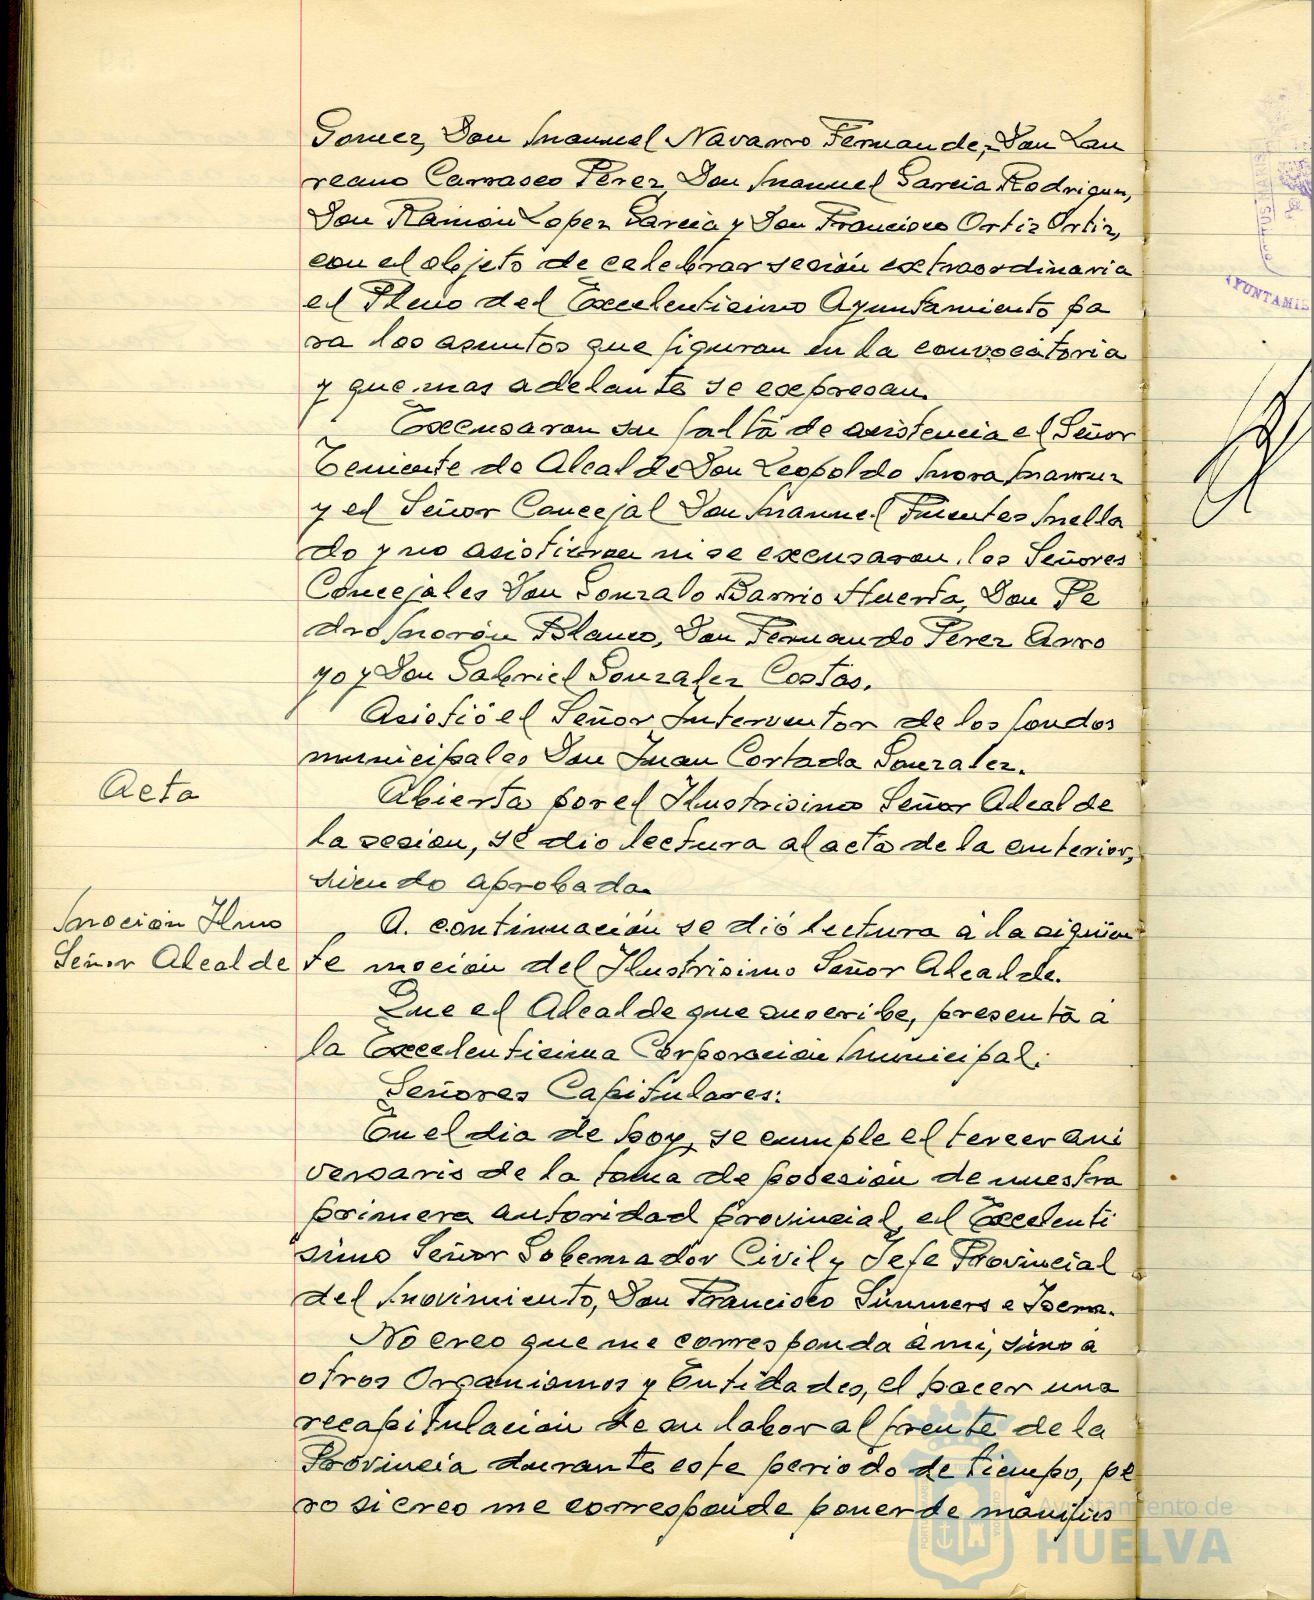 Gomez, Don Manuel Navarro Fernandez, Don Lau
reano Carrasco Perez, Don Manuel Garcia Rodriguez,
Don Ramón Lopez Garcia y Don Francisco Ortiz Ortiz,
con el objeto de celebrar sesión extraordinaria
el Pleno del Excelentisimo Ayuntamiento pa
ra los asuntos que figuran en la convocatoria
y que mas adelante se expresan.
Excusaron su falta de asistencia el Señor
Teniente de Alcalde Don Leopoldo Mora
y el Señor Concejal Don Manuel Fuentes Mella
do y no asistieron ni se excusaron, los Señores
Concejales Don Gonzalo Barrio Huerta, Don Pe
dro Morón Blanco, Don Fernando Perez Arro
yo y Don Gabriel Gonzalez Costas.
Asistió el Señor Interventor de los fondos
municipales Don Juan Cortada Gonzalez.
Acta
Abierta por el Ilustrisimo Señor Alcalde
la sesion, se dio lectura al acta de la anterior,
siendo aprobada.
Moción Ilmo
Señor Alcalde
A. continuación se dió lectura á la siguien
te moción del Ilustrisimo Señor Alcalde.
Que el Alcalde que suscribe, presenta á
la Excelentisima Corporación Municipal:
Señores Capitulares:
En el dia de hoy, se cumple el tercer ani
versario de la toma de posesión de nuestra
primera autoridad provincial, el Excelenti
simo Señor Gobernador Civil y Jefe Provincial
del Movimiento, Don Francisco Summers e Isern.
No creo que me corresponda á mi, sino á
otros Organismos y Entidades, el hacer una
recapitulación de su labor al frente de la
Provincia durante este periodo de tiempo, pe
ro si creo me corresponde poner de manifies
AYUNTAMIE
Ayuntamiento de
HUELVA